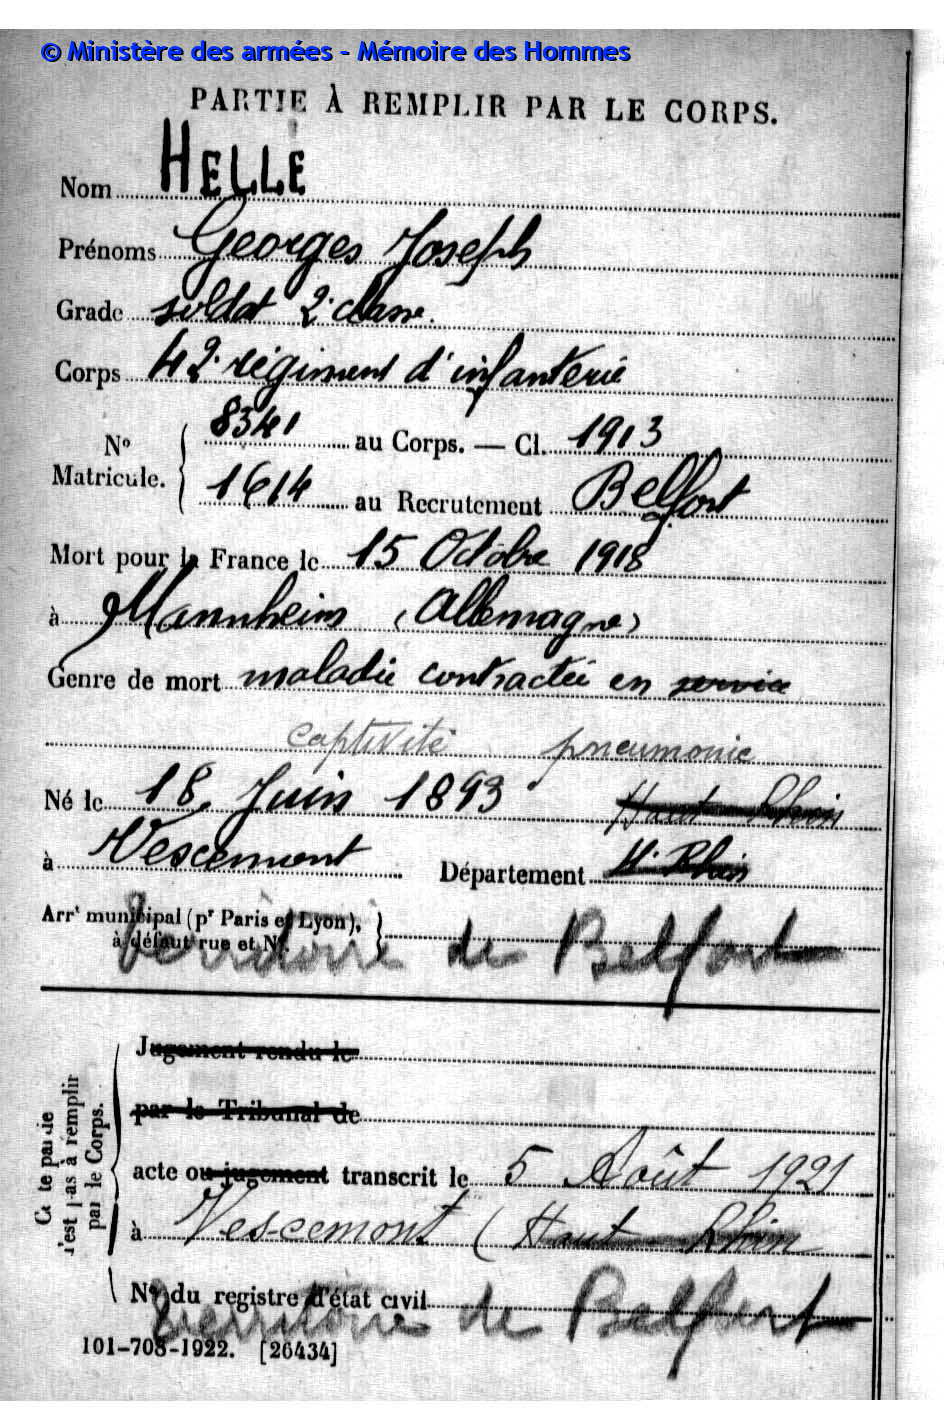 © Ministère des armées - Mémoire des Hommes
PARTIE À REMPLIR PAR LE CORPS.
Nom HELLE
Prénoms Georges Joseph
Grade soldat 2e classe.
Corps 42e régiment d'infanterie
No Matricule. 8341 au Corps. — Cl. 1913
1614 au Recrutement Belfort
Mort pour la France le 15 Octobre 1918
à Mannheim (Allemagne)
Genre de mort maladie contractée en service
captivité pneumonie
Né le 18 Juin 1893 Haut-Rhin
à Vescemont Département H. Rhin
Arrt municipal (pr Paris et Lyon),
à défaut rue et No.
Territoire de Belfort
Jugement rendu le
par le Tribunal de
acte ou jugement transcrit le 5 Août 1921
à Vescemont (Haut-Rhin
No du registre d'état civil
Territoire de Belfort
Cette partie
n'est pas à remplir
par le Corps.
101-708-1922. [26434]